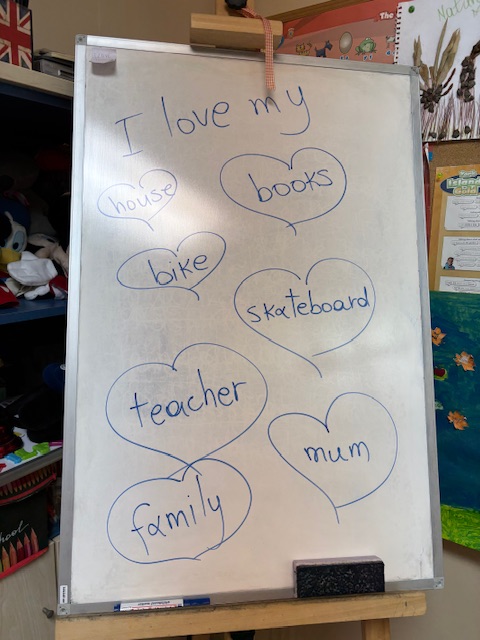 I love my
house
books
bike
skateboard
teacher
mum
family
The